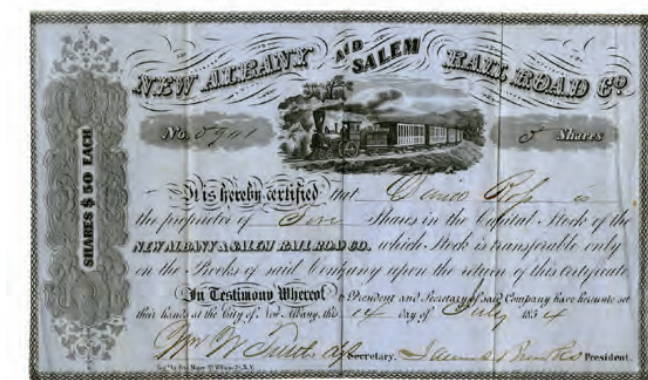 NEW ALBANY AND SALEM RAIL ROAD Co.
No. 5901 5 Shares
SHARES $ 50 EACH
It is hereby certified that is
the proprietor of Shares in the Capital Stock of the
NEW ALBANY & SALEM RAIL ROAD CO. which Stock is transferable only
on the Books of said Company upon the return of this Certificate
In Testimony Whereof the President and Secretary of said Company have hereunto set
their hands at the City of New Albany, this 14 day of July 1854
Secretary. James Brooks President.